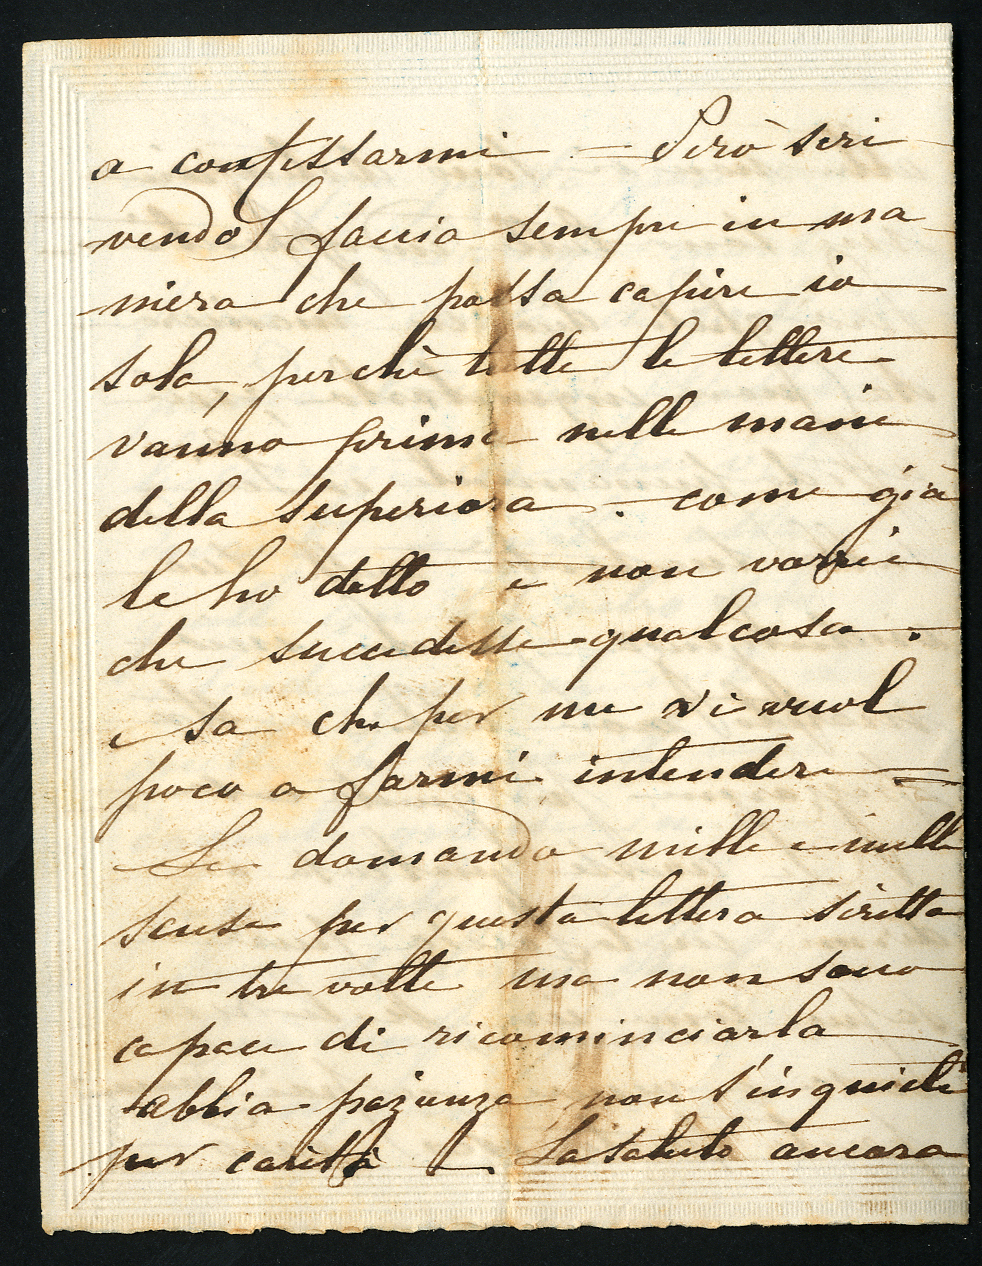 a confessarmi = Però scri
vendo faccia sempre in ma
niera che possa capire io
sola, perchè tutte le lettere
vanno prima nelle manie
della superiora. come già
le ho detto e non vorrei
che succedesse qualcosa.
e sa che per me vi vuol
poco a farmi intendere =
Le domando mille e mille
scuse per questa lettera scritta
in tre volte ma non sono
capace di ricominciarla
abbia pazienza non s'inquieti
per carità — La saluto ancora